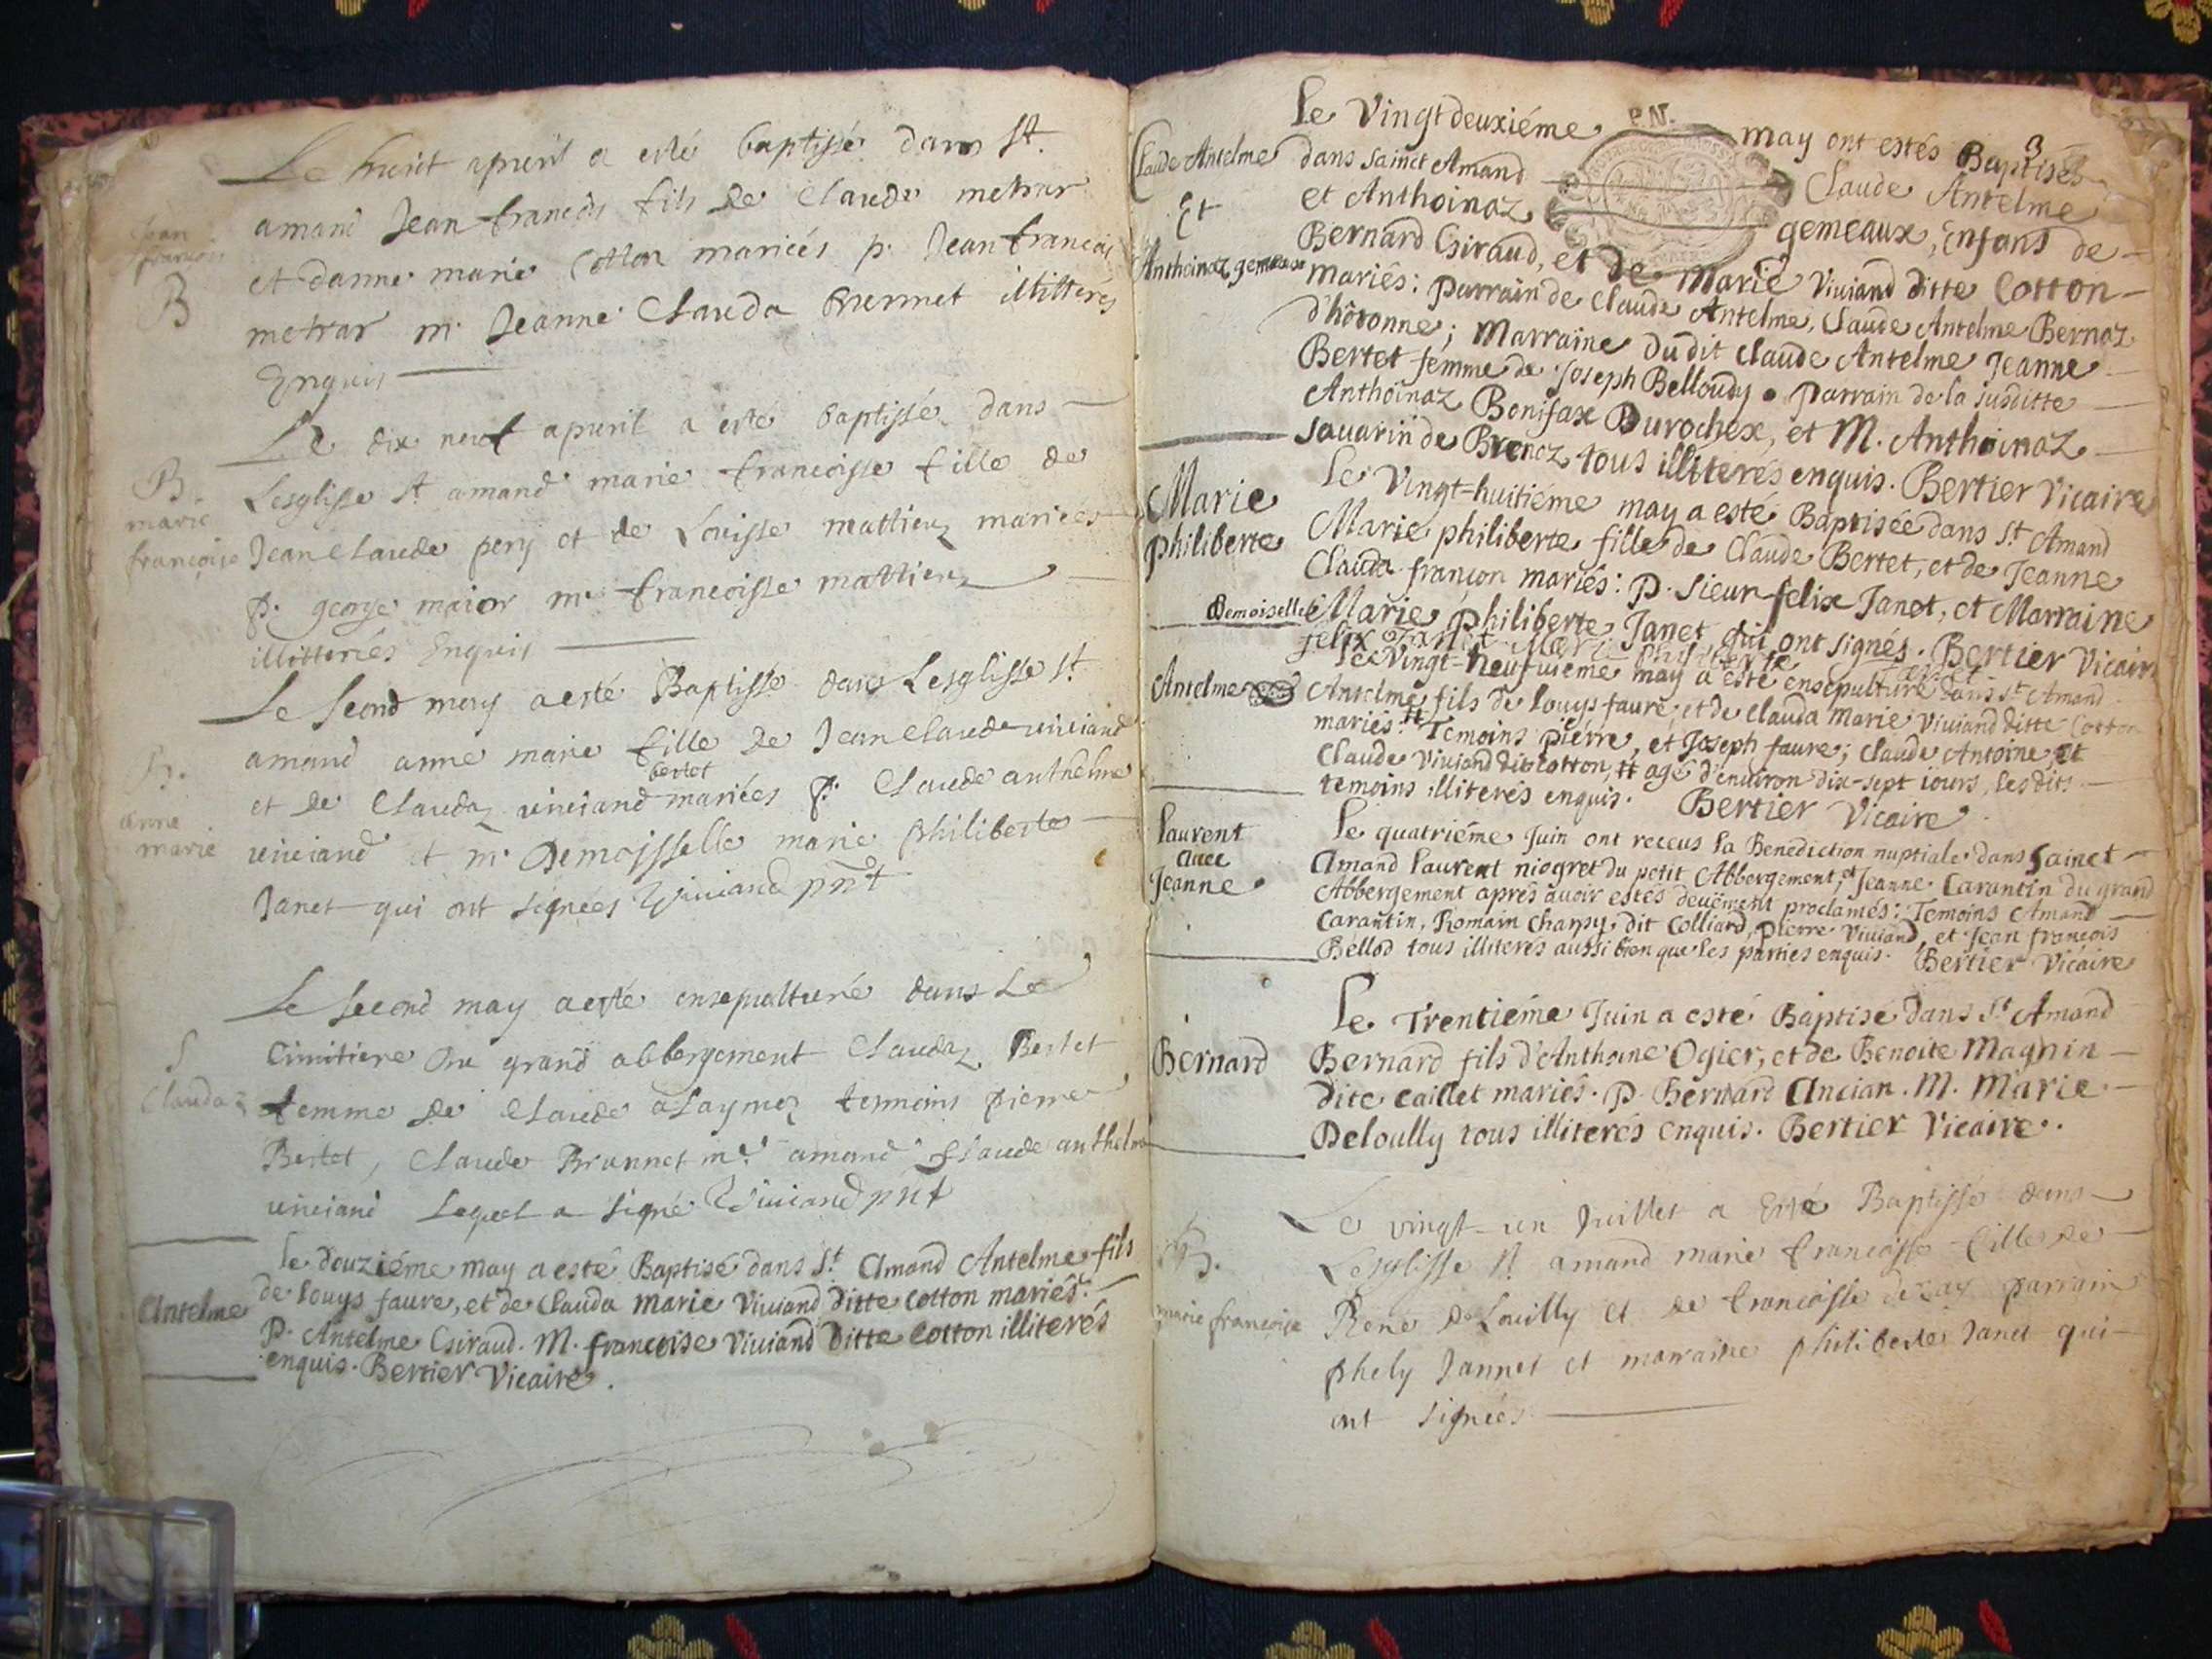 Le huit apuril a esté baptissé dans St.
amand Jean francois fils de Claude metrar
et danne marie Cotton mariées p. Jean francois
metrar m. Jeanne Clauda Brunnet illitterés
Enquis
Jean
francois
B
Le dix neuf apuril a esté baptissé dans
Lesglisse St amand marie francoisse fille de
Jean Claude pery et de Louisse mattieuz mariées
p. george maior m. francoisse mattieuz
illitterés Enquis
B.
marie
françoise
Le Seond mey a esté Baptissé dans Lesglisse St
amand anne marie fille de Jean Claude uiuiand
et de Claudaz uiuiand bertet mariées p. Claude anthelme
uiuiand et m. Demoissselle marie philiberte
Janet qui ont signées Viuiand pñt
B.
anne
marie
Le second may a esté ensepulturé dans Le
Cimitiere Du grand abbergement Claudaz Bertet
femme de Claude alaymoz temoins pierre
Bertet, Claude Brunnet me. amand Claude anthelme
uiuiand Lequel a signé Viuiand pñt
S
Claudaz
le douziéme may a esté Baptisé dans St. Amand Antelme fils
de louys faure, et de Clauda Marie Viuiand ditte Cotton mariés.
P. Antelme Giraud. M. françoise Viuiand ditte Cotton illiterés
enquis. Bertier Vicaire.
Antelme
P.N.
3
Le Vingt deuxiéme may ont estés Baptisés
dans sainct Amand Claude Antelme
et Anthoinaz gemeaux, Enfans de
Bernard Giraud, et de Marie Viuiand ditte Cotton
mariés: parrain de Claude Antelme, Claude Antelme Bernaz
d'hôtonne; Marraine du dit Claude Antelme Jeanne
Bertet femme de Joseph Belloudy. parrain de la susditte
Anthoinaz Bonifax Durochex, et M. Anthoinaz
sauarin de Brenaz tous illiterés enquis. Bertier Vicaire
Claude Antelme
Et
Anthoinaz gemeaux
Le Vingt-huitiéme may a esté Baptisée dans St. Amand
Marie philiberte fille de Claude Bertet, et de Jeanne
Clauda françon mariés: P. Sieur felix Janet, et Marraine
Demoiselle Marie philiberte Janet, qui ont signés. Bertier Vicaire
felix Janet Marie philiberte Janet
Marie
philiberte
le Vingt-neufuiéme may a esté ensepulturé dans St Amand
Antelme fils de louys faure, et de Clauda Marie Viuiand ditte Cotton
mariés. # Temoins pierre, et Joseph faure; Claude Antoine, et
Claude Viuiand dit Cotton, # agé d'enuiron dix-sept iours, lesdits
temoins illiterés enquis. Bertier Vicaire
Antelme
le quatriéme Juin ont receus la Benediction nuptiale dans Sainct
Amand Laurent niogret du petit Abbergement, et Jeanne Carantin du grand
Abbergement aprés auoir estés deuëment proclamés: Temoins Amand
Carantin, Romain Charpy, dit Colliard, pierre Viuiand, et Jean françois
Bellod tous illiterés aussi bien que les parties enquis. Bertier Vicaire
Laurent
auec
Jeanne
Le Trentiéme Juin a esté Baptisé dans St Amand
Bernard fils d'Anthoine Ogier, et de Benoite Magnin
dite caillet mariés. P. Bernard Ancian. M. Marie
Deloully tous illiterés enquis. Bertier Vicaire.
Bernard
Le vingt-un Juillet a Esté Baptissé dans
Lesglisse St amand marie francoisse fille de
Rene De Louilly et de francoisse parrain
phely Jannet et marraine philiberte Janet qui
ont signées
B.
marie françoise